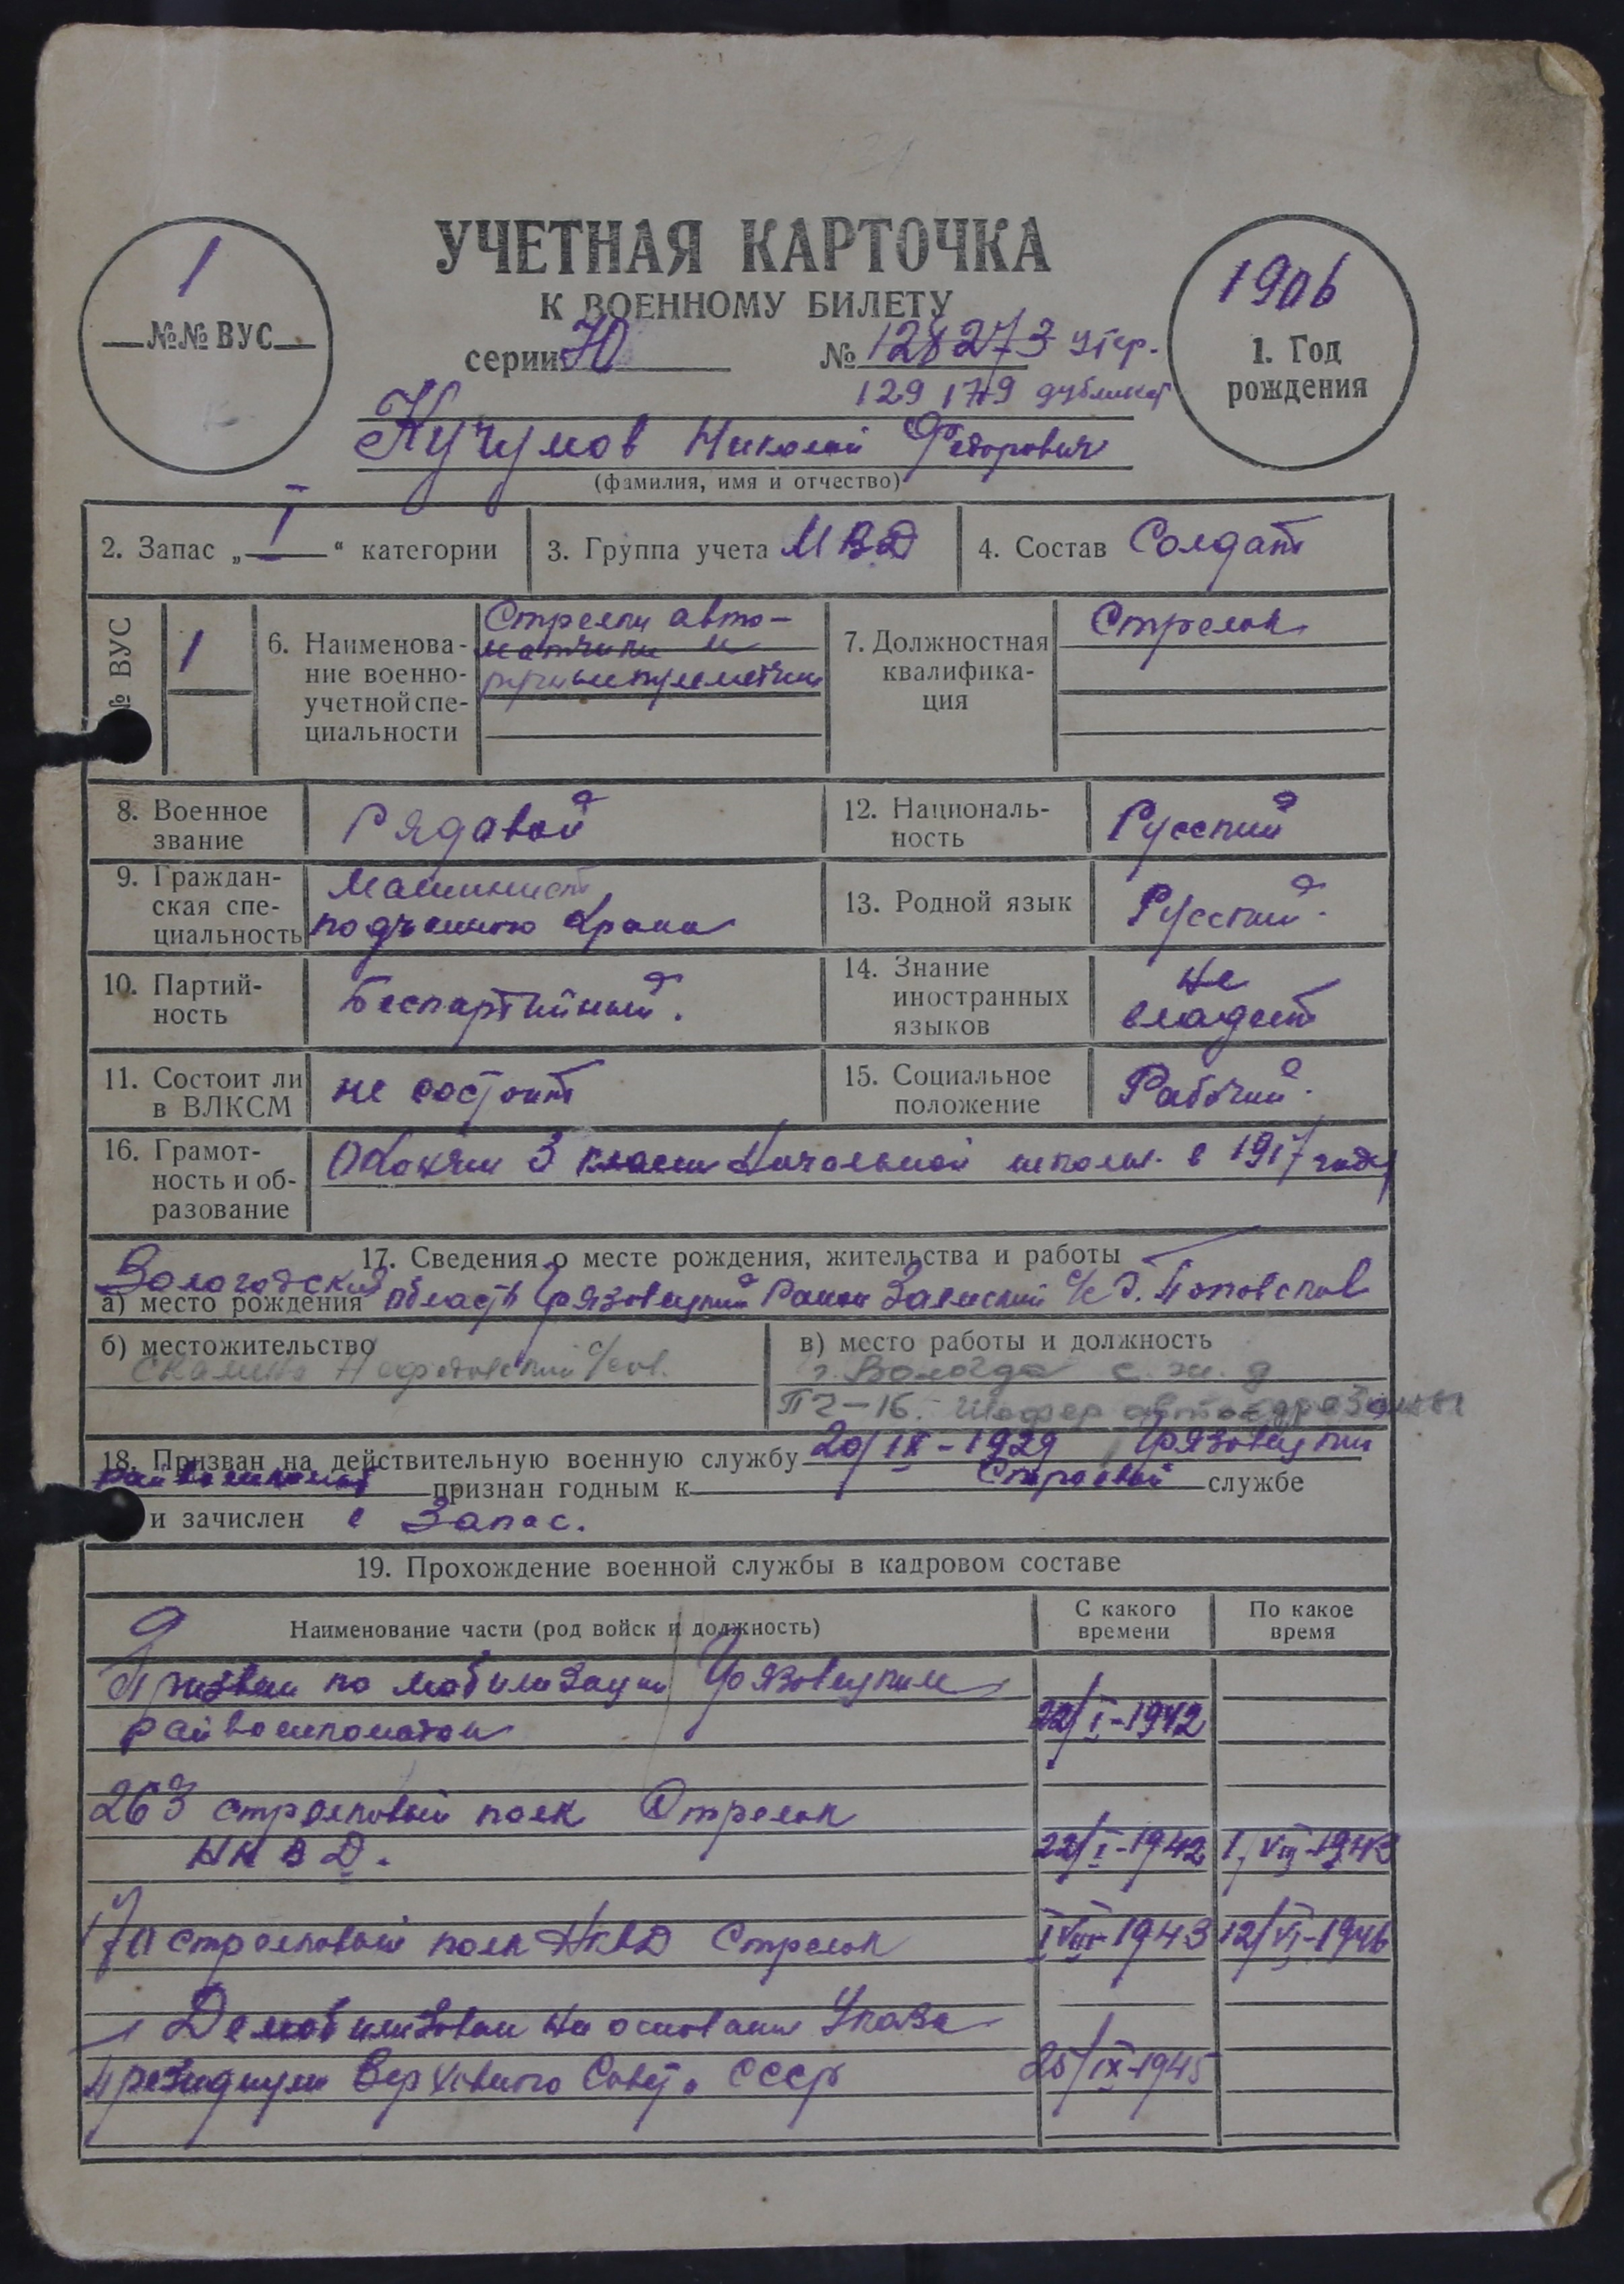 УЧЕТНАЯ КАРТОЧКА
К ВОЕННОМУ БИЛЕТУ
1
№№ ВУС
1906
1. Год
рождения
серии Ю № 128273 утер.
129179 дубликат
Кучумов Николай Федорович
(фамилия, имя и отчество)
2. Запас „I“ категории
3. Группа учета МВД
4. Состав Солдат
№ ВУС
1
6. Наименова-
ние военно-
учетной спе-
циальности
Стрелки авто-
матчики и
ручные пулеметчики
7. Должностная
квалифика-
ция
Стрелок
8. Военное
звание
Рядавой
12. Националь-
ность
Русский
9. Граждан-
ская спе-
циальность
Машинист
подъемного крана
13. Родной язык
Русский.
10. Партий-
ность
Беспартийный.
14. Знание
иностранных
языков
Не
владеет
11. Состоит ли
в ВЛКСМ
не состоит
15. Социальное
положение
Рабочий.
16. Грамот-
ность и об-
разование
Окончил 3 класса Начальной школы. в 1917 году
17. Сведения о месте рождения, жительства и работы
Вологодская
а) место рождения область Грязовецкий Район Залесский с/с Д. Поповское
б) местожительство
в) место работы и должность
г. Вологда с. ж. д
ПЧ-16. Шофер автодрезины
18. Призван на действительную военную службу 20/IX-1929 Грязовецким
райвоенкомат признан годным к Строевой службе
и зачислен в Запас.
19. Прохождение военной службы в кадровом составе
Наименование части (род войск и должность)
С какого
времени
По какое
время
Призван по мобилизации Грязовецким
райвоенкоматом 22/I-1942
263 стрелковый полк Стрелок
НКВД. 22/I-1942 I/VIII-1943
170 стрелковый полк НКВД Стрелок I/VIII-1943 12/VI-1946
Демобилизован на основании Указа
Президиума Верховного Совета СССР 25/IX-1945